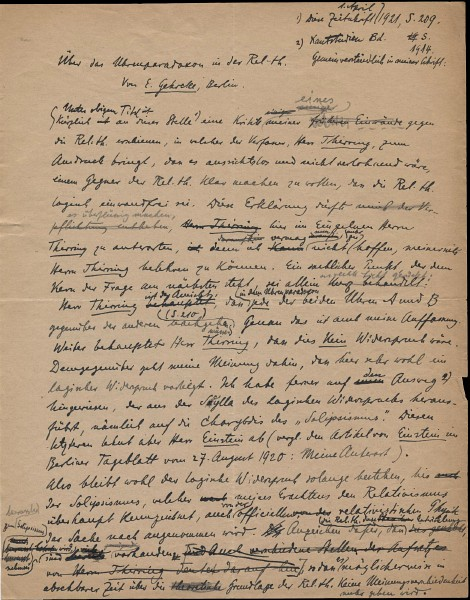 1. April
1) Diese Zeitschrift 1921, S. 209.
2) Kantstudien Bd. S.
1914.
Gemeinverständlich in meiner Schrift
Über das Uhrenparadoxon in der Rel.-th.
Von E. Gehrcke, Berlin.
Unter obigem Titel ist
eines
Kürzlich an dieser Stelle eine Kritik meiner Einwände gegen
die Rel.th. erschienen, in welcher der Verfasser, Herr Thirring, zum
Ausdruck bringt, dass es aussichtslos und nicht verlohnend wäre,
einem Gegner der Rel.th. klar machen zu wollen, dass die Rel.th.
logisch einwandfrei sei. Diese Erklärung dürfte
es überflüssig machen,
Herrn Thirring hier im Einzelnen Herrn
Thirring zu antworten, denn ich nicht hoffen, meinerseits
Herrn Thirring belehren zu können. Ein sachlicher Punkt, der dem
Kern der Frage am nächsten steht, sei allein
Herr Thirring behauptet dass jede der beiden Uhren A und B
ist der Ansicht
in dem Uhrenparadoxon
(S. 210)
gegenüber der anderen Genau das ist auch meine Auffassung.
Weiter behauptet Herr Thirring, dass dies kein Widerspruch wäre.
Demgegenüber geht meine Meinung dahin, dass hier sehr wohl ein
logischer Widerspruch vorliegt. Ich habe ferner auf den Ausweg 2)
hingewiesen, der aus der Skylla des logischen Widerspruchs heraus-
führt, nämlich auf die Charybdis des "Solipsismus". Diesen
letzteren lehnt aber Herr Einstein ab (vergl. den Artikel von Einstein im
Berliner Tageblatt vom 27. August 1920: Meine Antwort).
Also bleibt wohl der logische Widerspruch solange bestehen, bis
der Solipsismus, welcher meines Erachtens den Relativismus
überhaupt kennzeichnet, auch offiziell von der relativistischen Physik
der Sache nach angenommen wird. Anzeichen dafür, dass
vorhanden
Herrn Thirring sodass möglicherweise in
absehbarer Zeit über die Grundlage der Rel.th. keine Meinungsverschiedenheit
mehr geben wird.